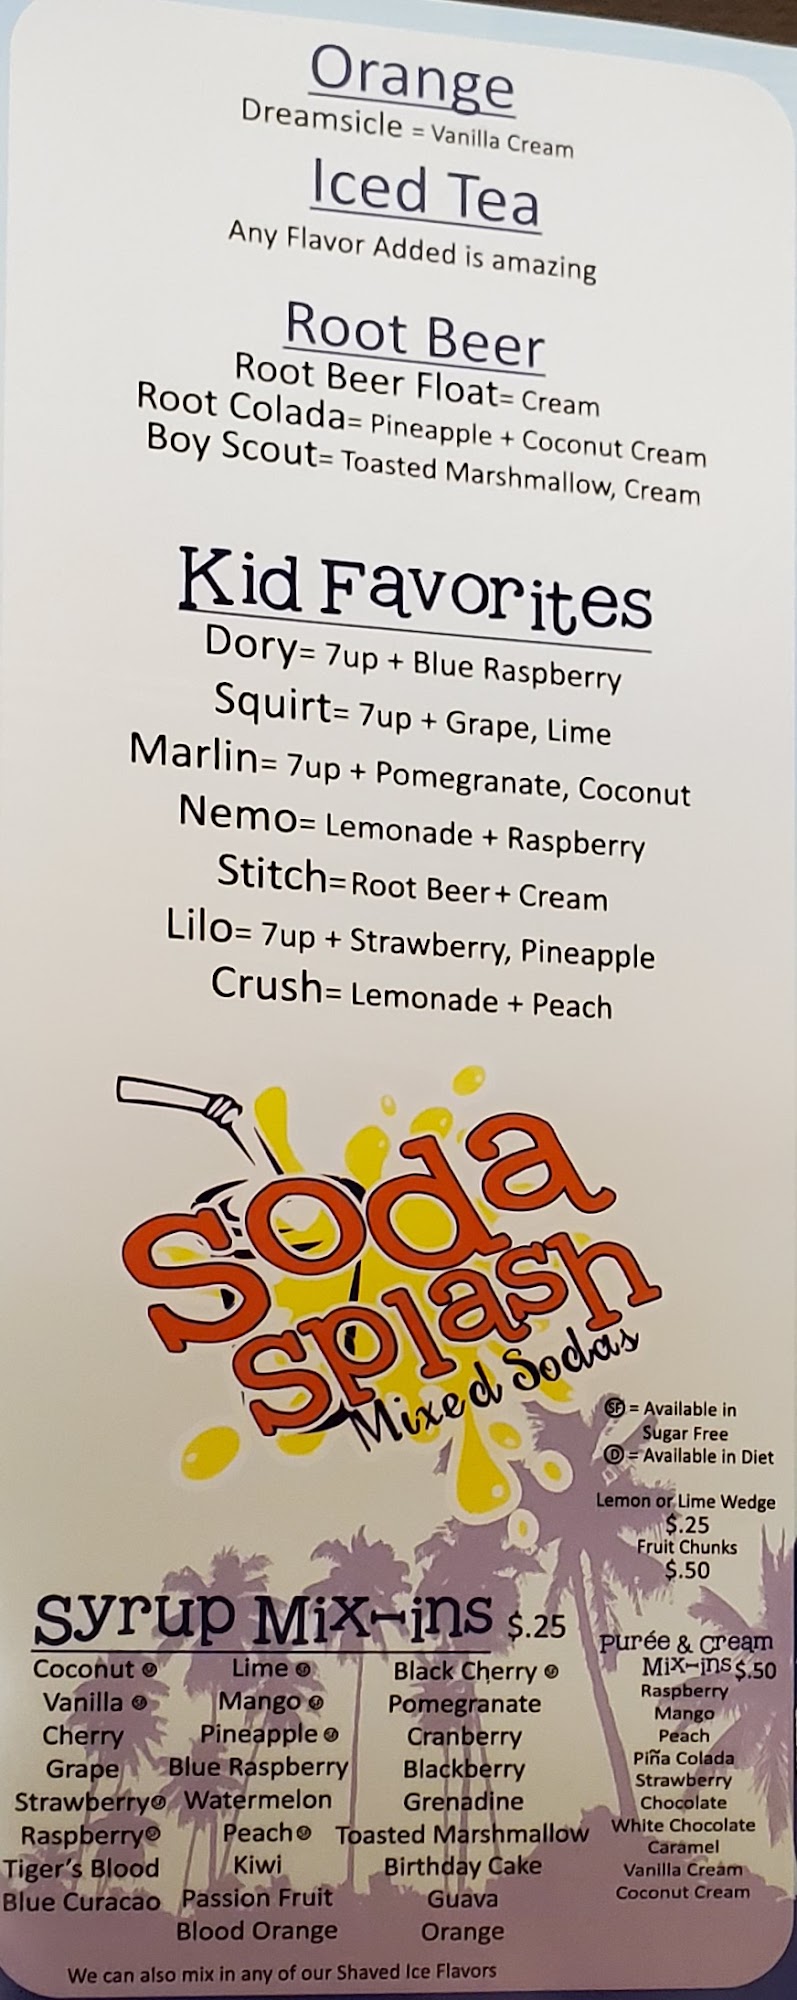 Orange
Dreamsicle = Vanilla Cream
Iced Tea
Any Flavor Added is amazing
Root Beer
Root Beer Float= Cream
Root Colada= Pineapple + Coconut Cream
Boy Scout= Toasted Marshmallow, Cream
Kid Favorites
Dory= 7up + Blue Raspberry
Squirt= 7up + Grape, Lime
Marlin= 7up + Pomegranate, Coconut
Nemo= Lemonade + Raspberry
Stitch= Root Beer + Cream
Lilo= 7up + Strawberry, Pineapple
Crush= Lemonade + Peach
Soda
Splash
Mixed Sodas
SF = Available in
Sugar Free
D = Available in Diet
Lemon or Lime Wedge
$.25
Fruit Chunks
$.50
Syrup Mix-ins $.25
Coconut SF Lime SF Black Cherry SF
Vanilla SF Mango SF Pomegranate
Cherry Pineapple SF Cranberry
Grape Blue Raspberry Blackberry
Strawberry SF Watermelon Grenadine
Raspberry SF Peach SF Toasted Marshmallow
Tiger's Blood Kiwi Birthday Cake
Blue Curacao Passion Fruit Guava
Blood Orange Orange
Purée & Cream
Mix-ins $.50
Raspberry
Mango
Peach
Piña Colada
Strawberry
Chocolate
White Chocolate
Caramel
Vanilla Cream
Coconut Cream
We can also mix in any of our Shaved Ice Flavors